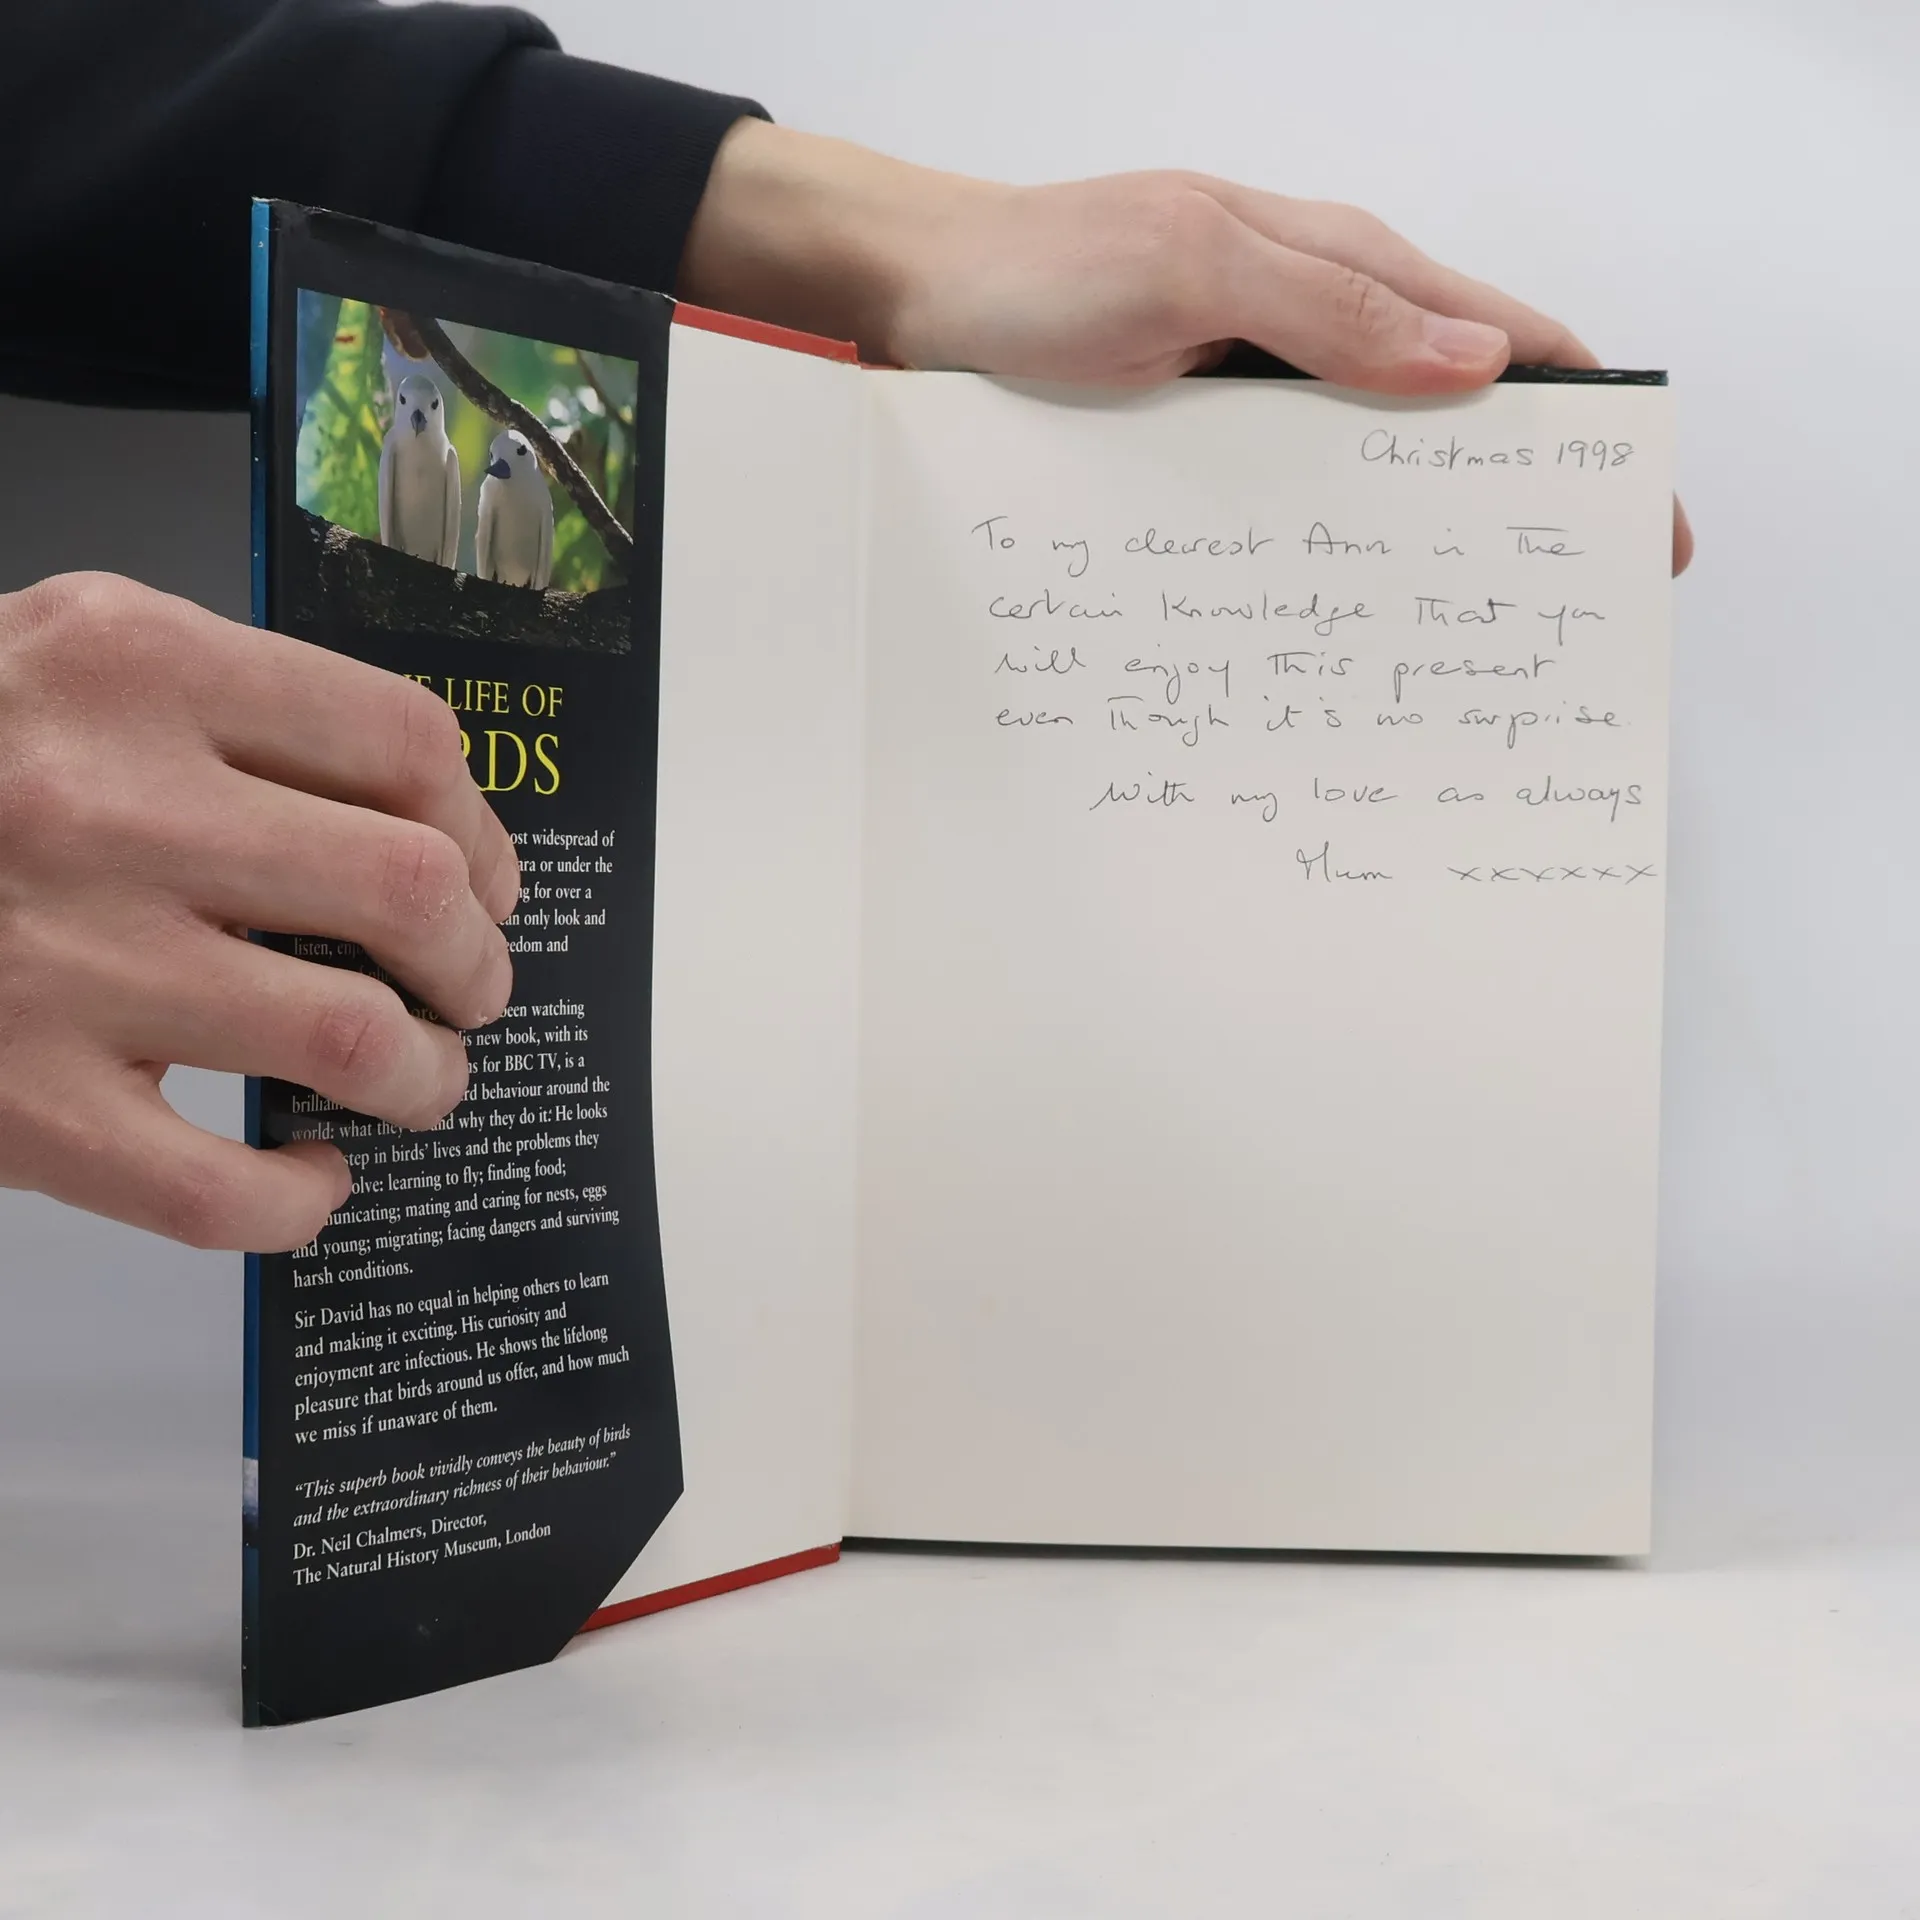 LIFE OF
RDS
ost widespread of
ara or under the
ng for over a
an only look and
listen, edom and
been watching
is new book, with its
ns for BBC TV, is a
rd behaviour around the
world: what they and why they do it. He looks
step in birds' lives and the problems they
olve: learning to fly; finding food;
municating; mating and caring for nests, eggs
and young; migrating; facing dangers and surviving
harsh conditions.
Sir David has no equal in helping others to learn
and making it exciting. His curiosity and
enjoyment are infectious. He shows the lifelong
pleasure that birds around us offer, and how much
we miss if unaware of them.
"This superb book vividly conveys the beauty of birds
and the extraordinary richness of their behaviour."
Dr. Neil Chalmers, Director,
The Natural History Museum, London
Christmas 1998
To my dearest Ann in the
certain knowledge that you
will enjoy this present
even though it's no surprise.
With my love as always
Mum xxxxxxx